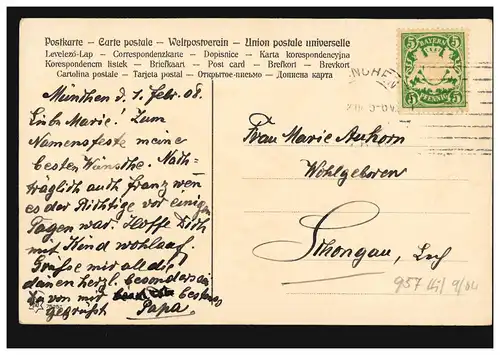 Postkarte – Carte postale – Weltpostverein – Union postale universelle
Levelező-Lap – Correspondenzkarte – Dopisnice – Karta korespondencyjna
Korespondencni listek – Briefkaart – Post card – Brefkort – Brevkort
Cartolina postale – Tarjeta postal – Открытое-письмо – Дописна карта
BAYERN
5 5
5 5
PFENNIG
München d. 1. Febr. 08.
Liebe Marie! Zum
Namensfeste meine
besten Wünsche. Nach-
träglich auch Franz wen
es der Richtige vor einigen
Tagen war. Hoffe Dich
mit Kind wohlauf.
Grüße mir alle die
herzl. besonders
von mir bestens
gegrüßt Papa.
Frau Marie
Wohlgeboren
Schongau, Lech
957
9/04